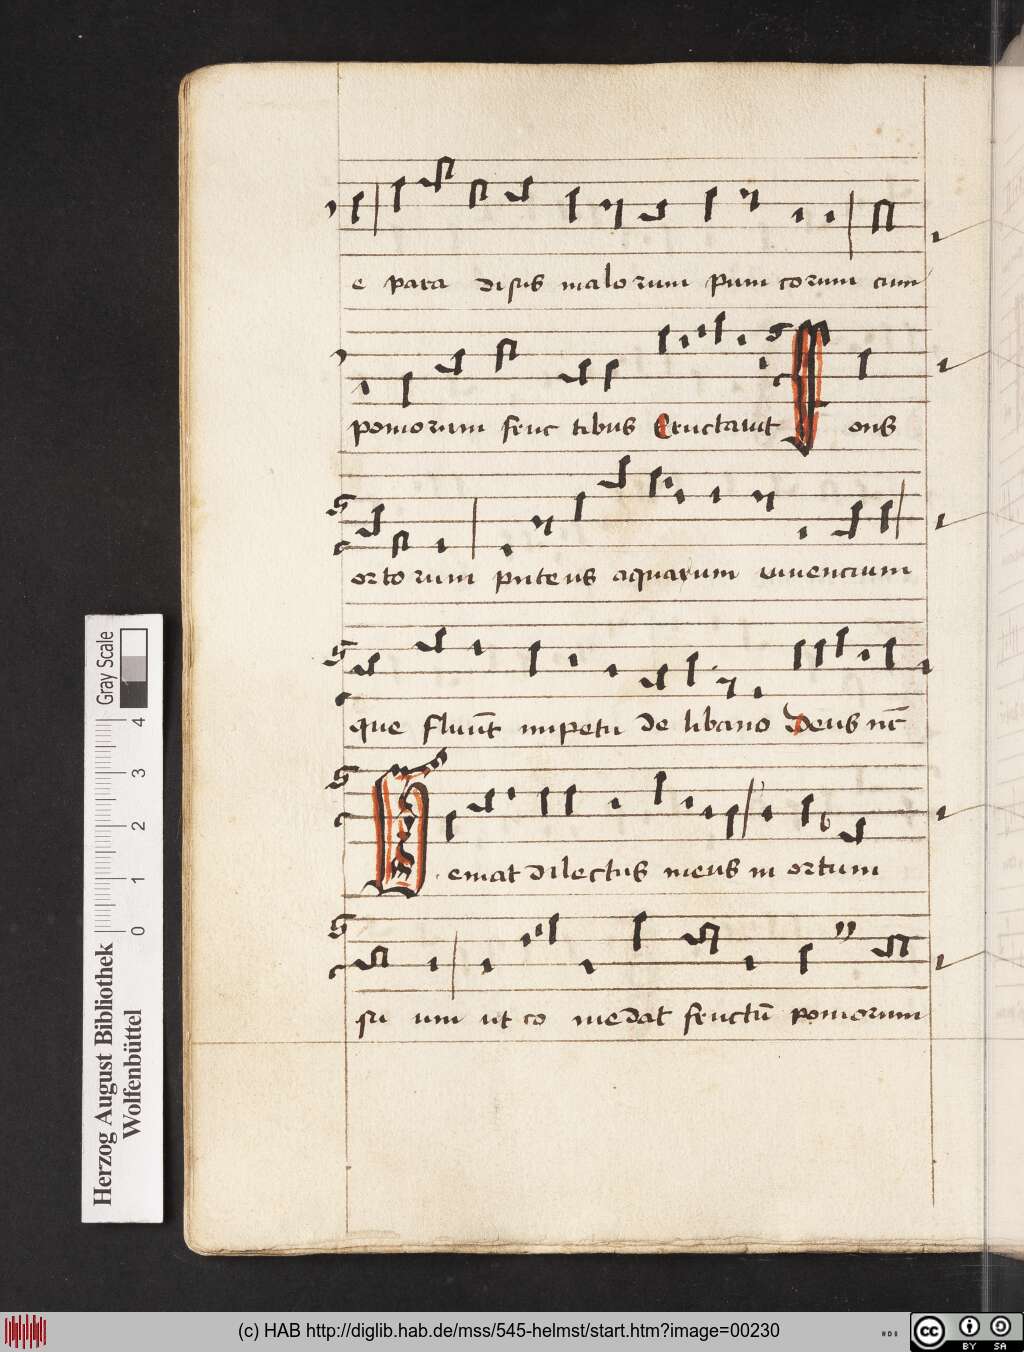 e para disus malorum punicorum cum
pomorum fruc tibus Eructauit Fons
ortorum puteus aquarum viuencium
que fluūt impetu de libano Deus nr̄
Veniat dilectus meus in ortum
su um ut co medat fructū pomorum
Herzog August Bibliothek
Wolfenbüttel
Gray Scale
0 1 2 3 4
(c) HAB http://diglib.hab.de/mss/545-helmst/start.htm?image=00230
HAB
cc BY SA